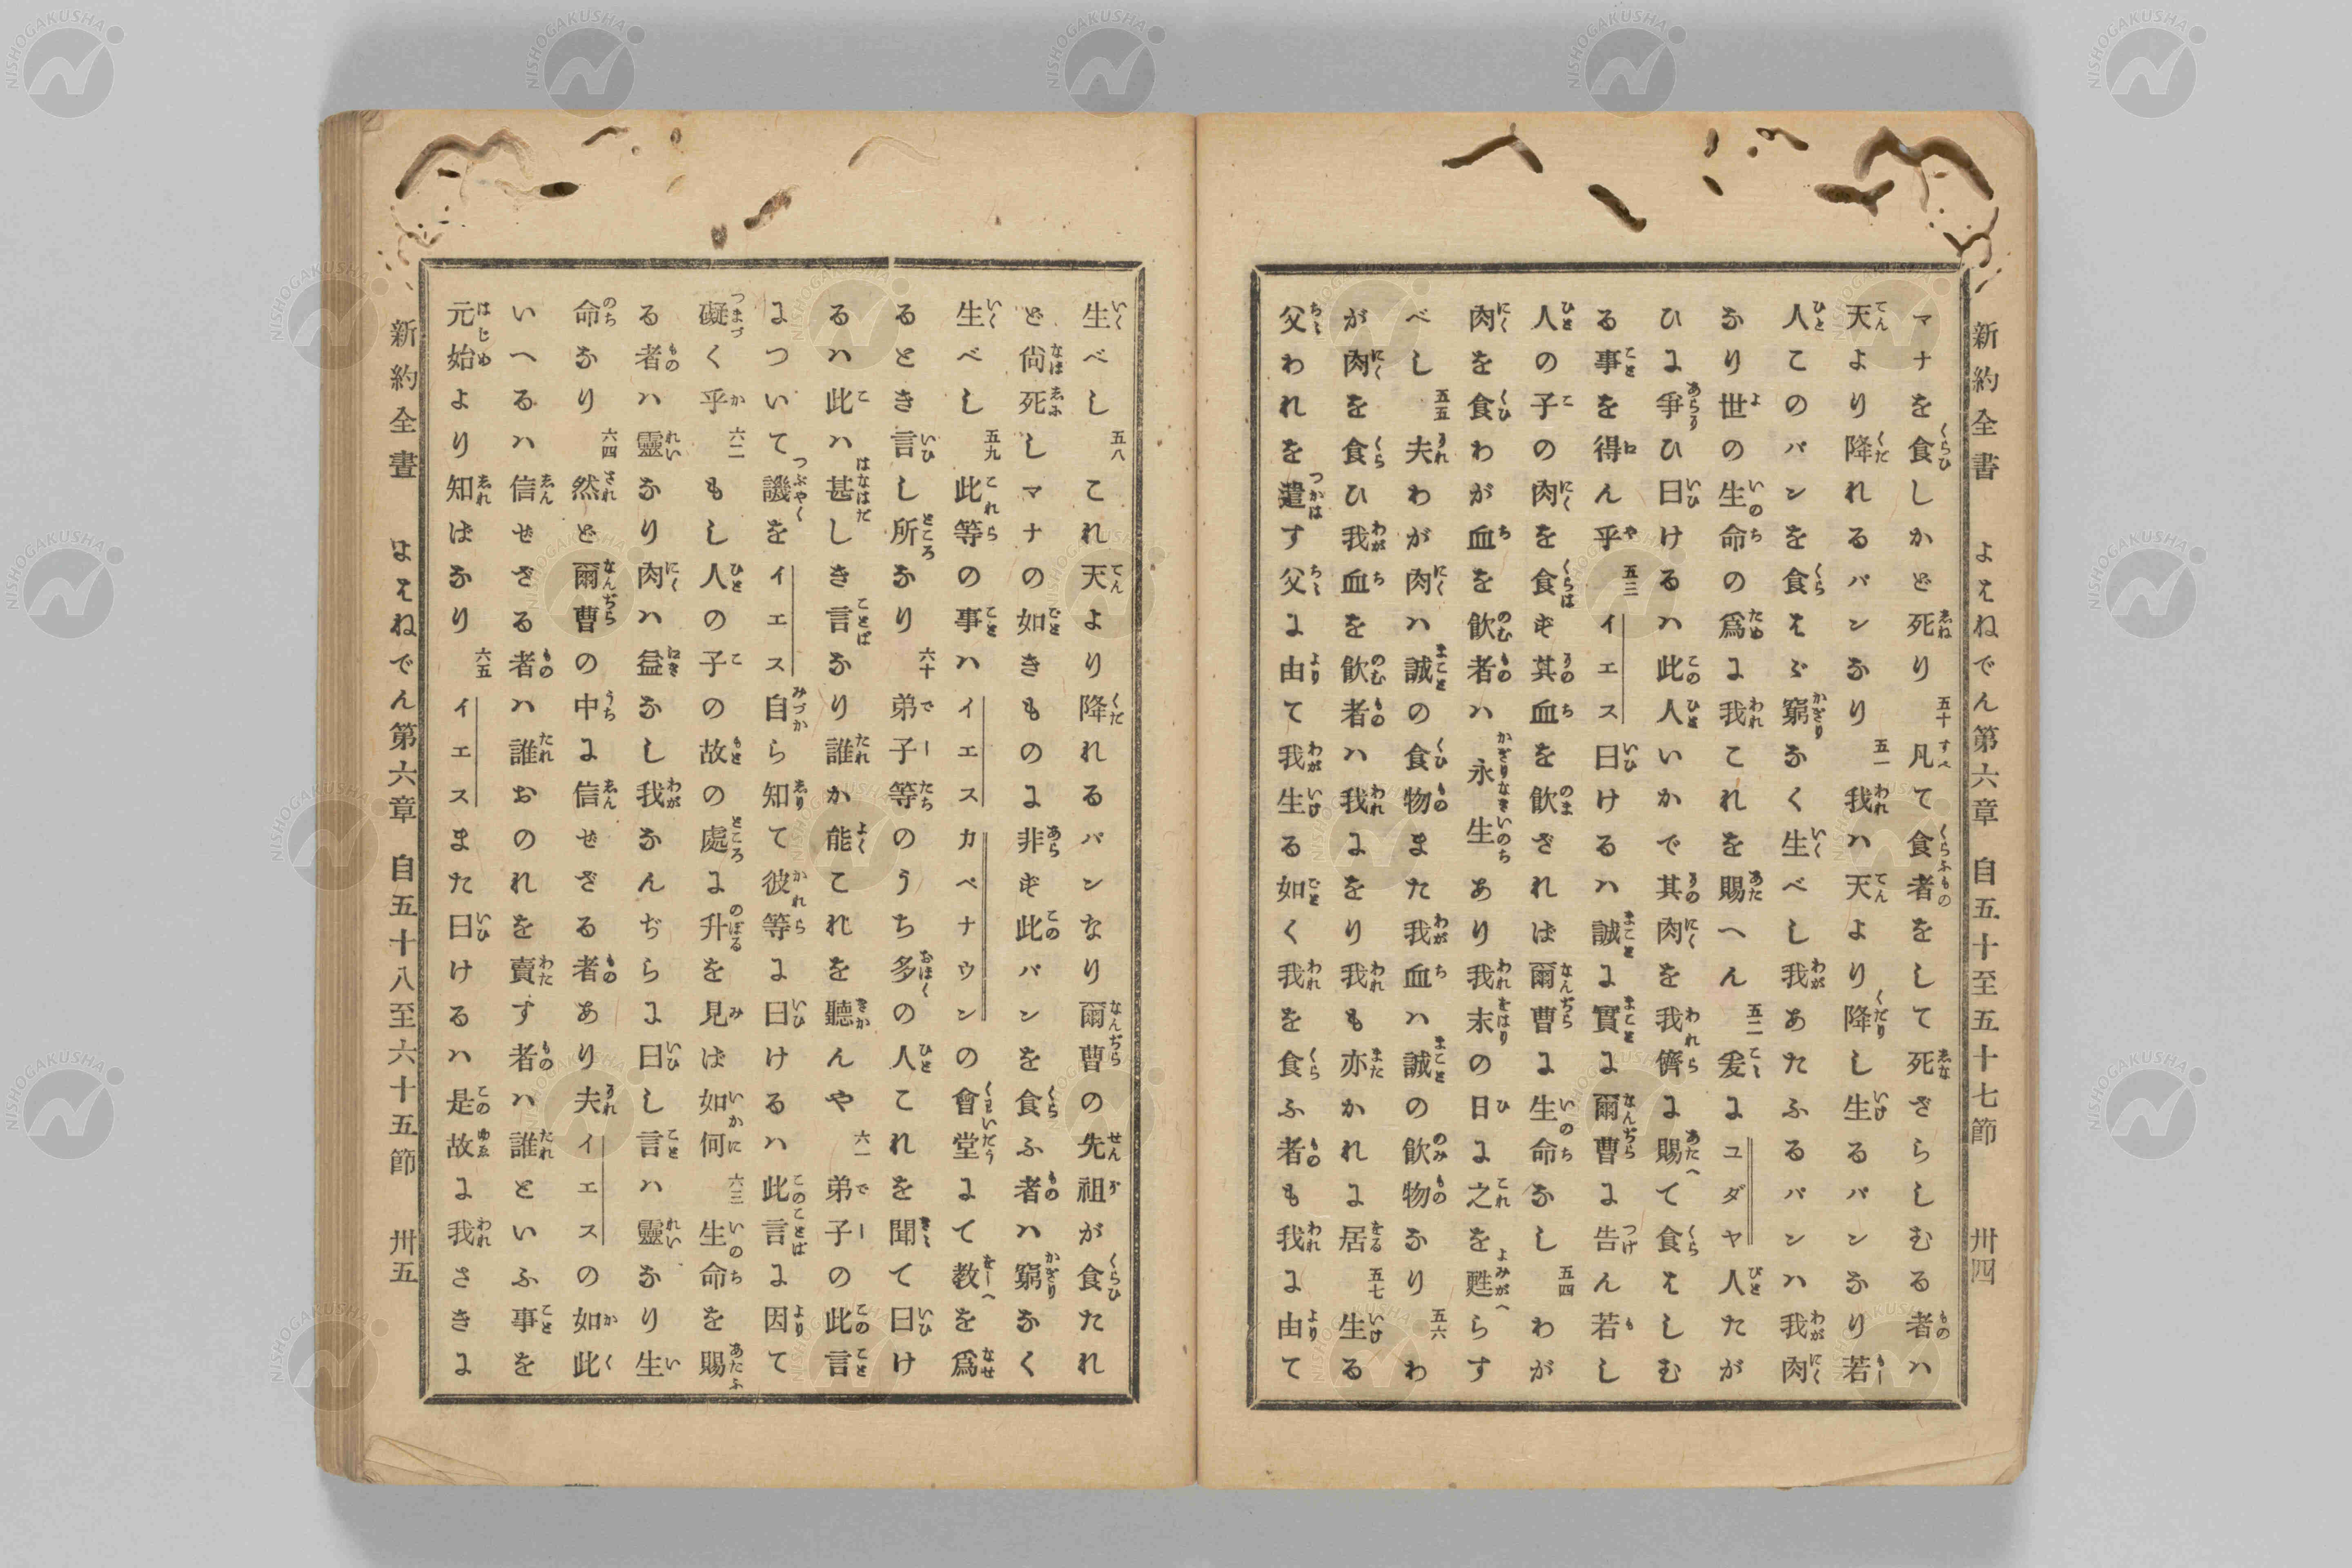 新約全書 よはねでん第六章 自五十至五十七節 卅四
マナを食しかど死り 五十 凡て食者をして死ざらしむる者ハ
天より降れるパンなり 五一 我ハ天より降し生るパンなり若
人このパンを食はゞ窮なく生べし我あたふるパンハ我肉
なり世の生命の爲に我これを賜へん 五二 爰にユダヤ人たが
ひに爭ひ曰けるハ此人いかで其肉を我儕に賜て食はしむ
る事を得ん乎 五三 イエス曰けるハ誠に實に爾曹に告ん若し
人の子の肉を食ず其血を飮ざれば爾曹に生命なし 五四 わが
肉を食わが血を飮者ハ永生あり我末の日に之を甦らす
べし 五五 夫わが肉ハ誠の食物また我血ハ誠の飮物なり 五六 わ
が肉を食ひ我血を飮者ハ我にをり我も亦かれに居 五七 生る
父われを遣す父に由て我生る如く我を食ふ者も我に由て
生べし 五八 これ天より降れるパンなり爾曹の先祖が食たれ
ど尙死しマナの如きものに非ず此パンを食ふ者ハ窮なく
生べし 五九 此等の事ハイエスカペナウンの會堂にて教を爲
るとき言し所なり 六十 弟子等のうち多の人これを聞て曰け
るハ此ハ甚しき言なり誰か能これを聽んや 六一 弟子の此言
について譏をイエス自ら知て彼等に曰けるハ此言に因て
礙く乎 六二 もし人の子の故の處に升を見ば如何 六三 生命を賜
る者ハ靈なり肉ハ益なし我なんぢらに曰し言ハ靈なり生
命なり 六四 然ど爾曹の中に信ぜざる者あり夫イエスの如此
いへるハ信ぜざる者ハ誰おのれを賣す者ハ誰といふ事を
元始より知ばなり 六五 イエスまた曰けるハ是故に我さきに
新約全書 よはねでん第六章 自五十八至六十五節 卅五
NISHOGAKUSHA